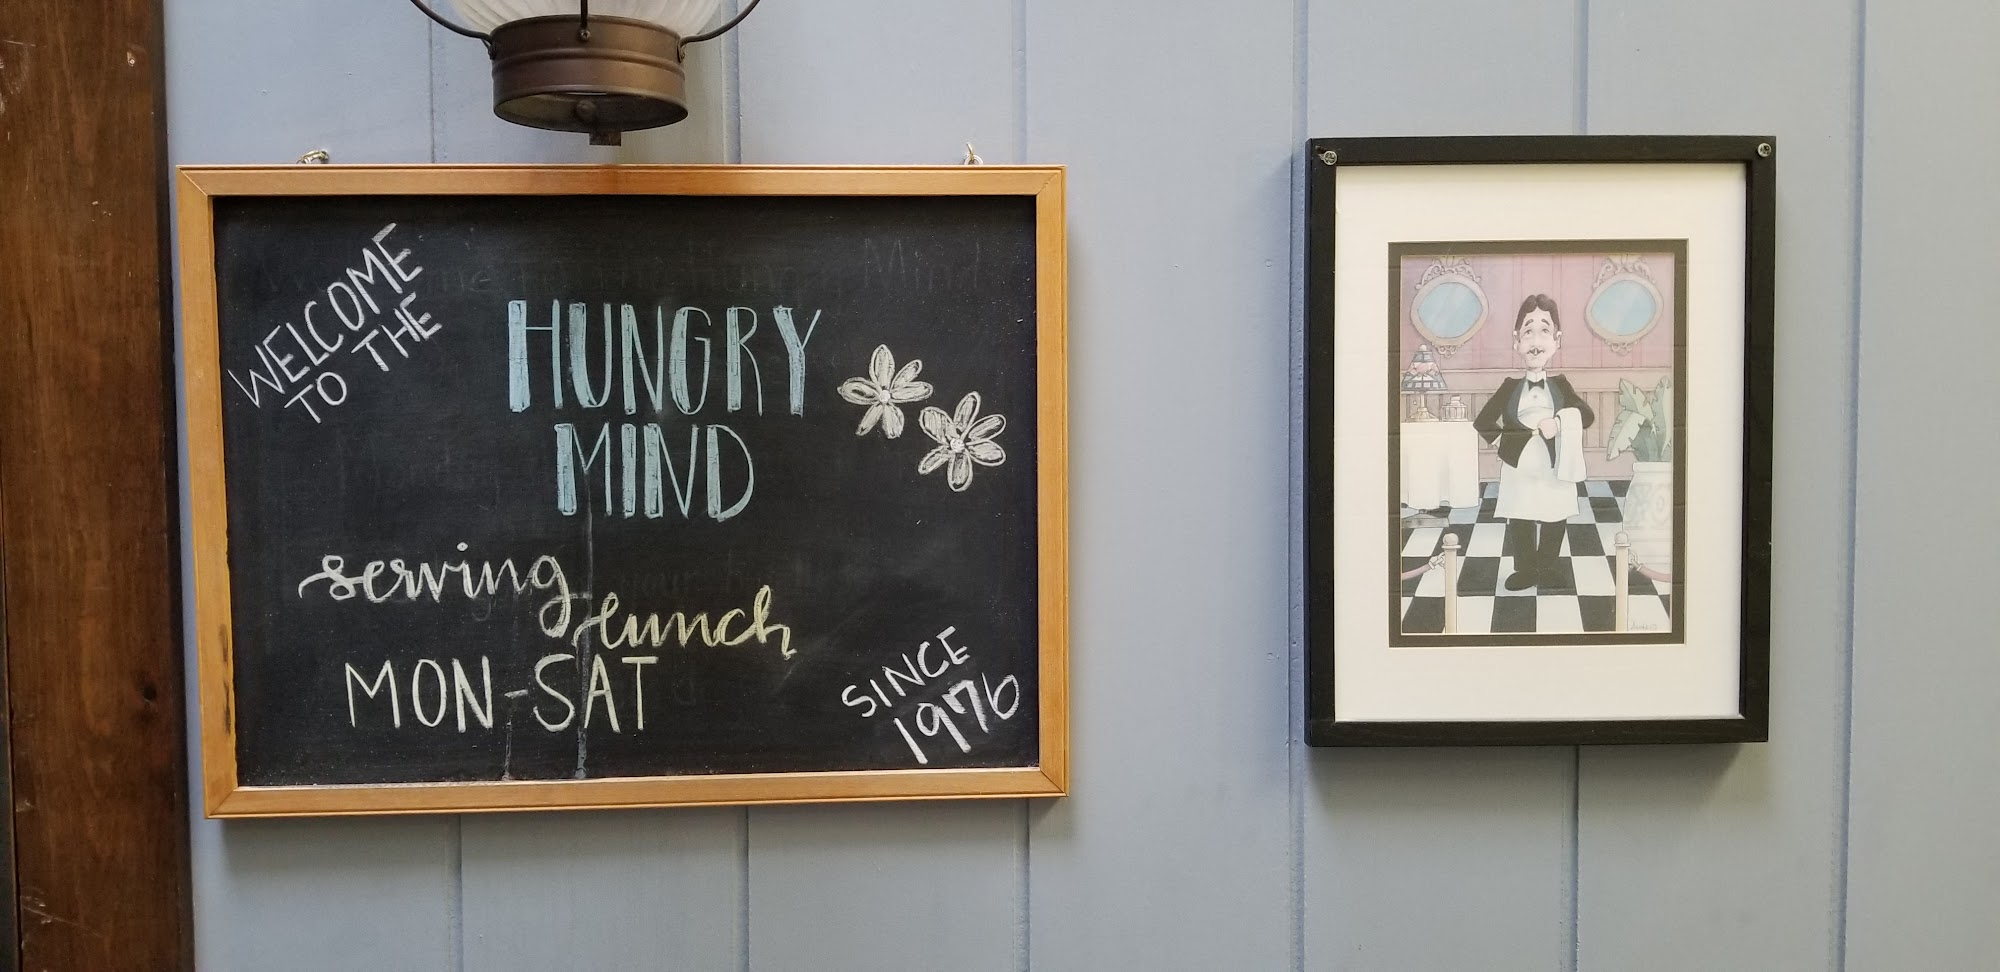 WELCOME
TO THE
HUNGRY
MIND
serving
lunch
MON-SAT
SINCE
1976